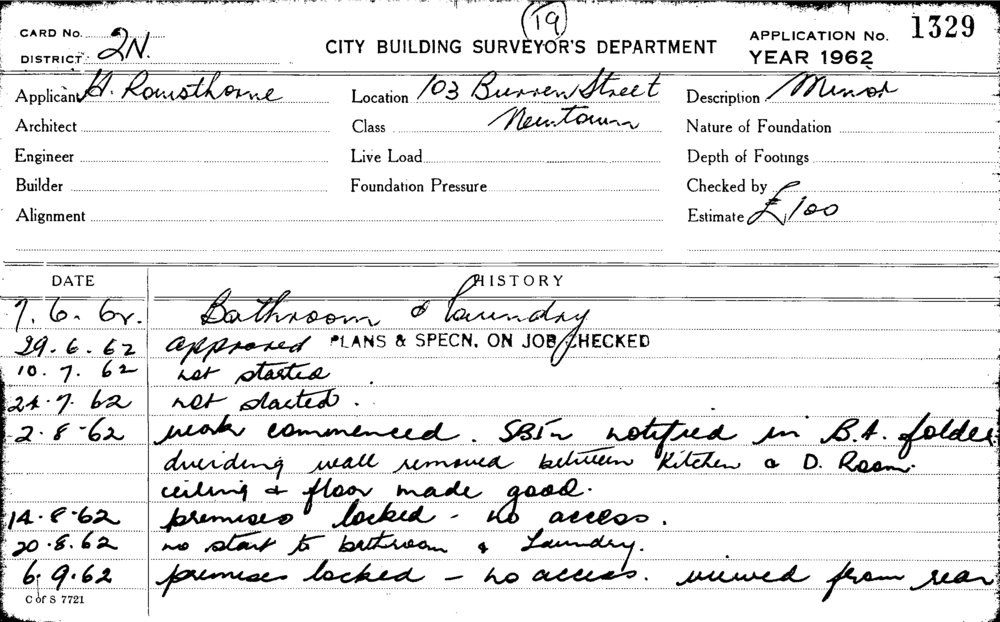 19
CARD No.
DISTRICT 2N.
CITY BUILDING SURVEYOR'S DEPARTMENT
APPLICATION No. 1329
YEAR 1962
Applicant H. Rowsthorne Location 103 Burren Street Description Minor
Architect Class Newtown Nature of Foundation
Engineer Live Load Depth of Footings
Builder Foundation Pressure Checked by
Alignment Estimate £100
DATE HISTORY
7.6.62. Bathroom & laundry
29.6.62 approved PLANS & SPECN. ON JOB CHECKED
10.7.62 not started
24.7.62 not started.
2-8-62 work commenced. SBIn notified in B.A. folder
dividing wall removed between Kitchen & D. Room.
ceiling & floor made good.
14.8-62 premises locked - no access.
20.8.62 no start to bathroom & Laundry.
6.9.62 premises locked - no access. viewed from rear
C of S 7721